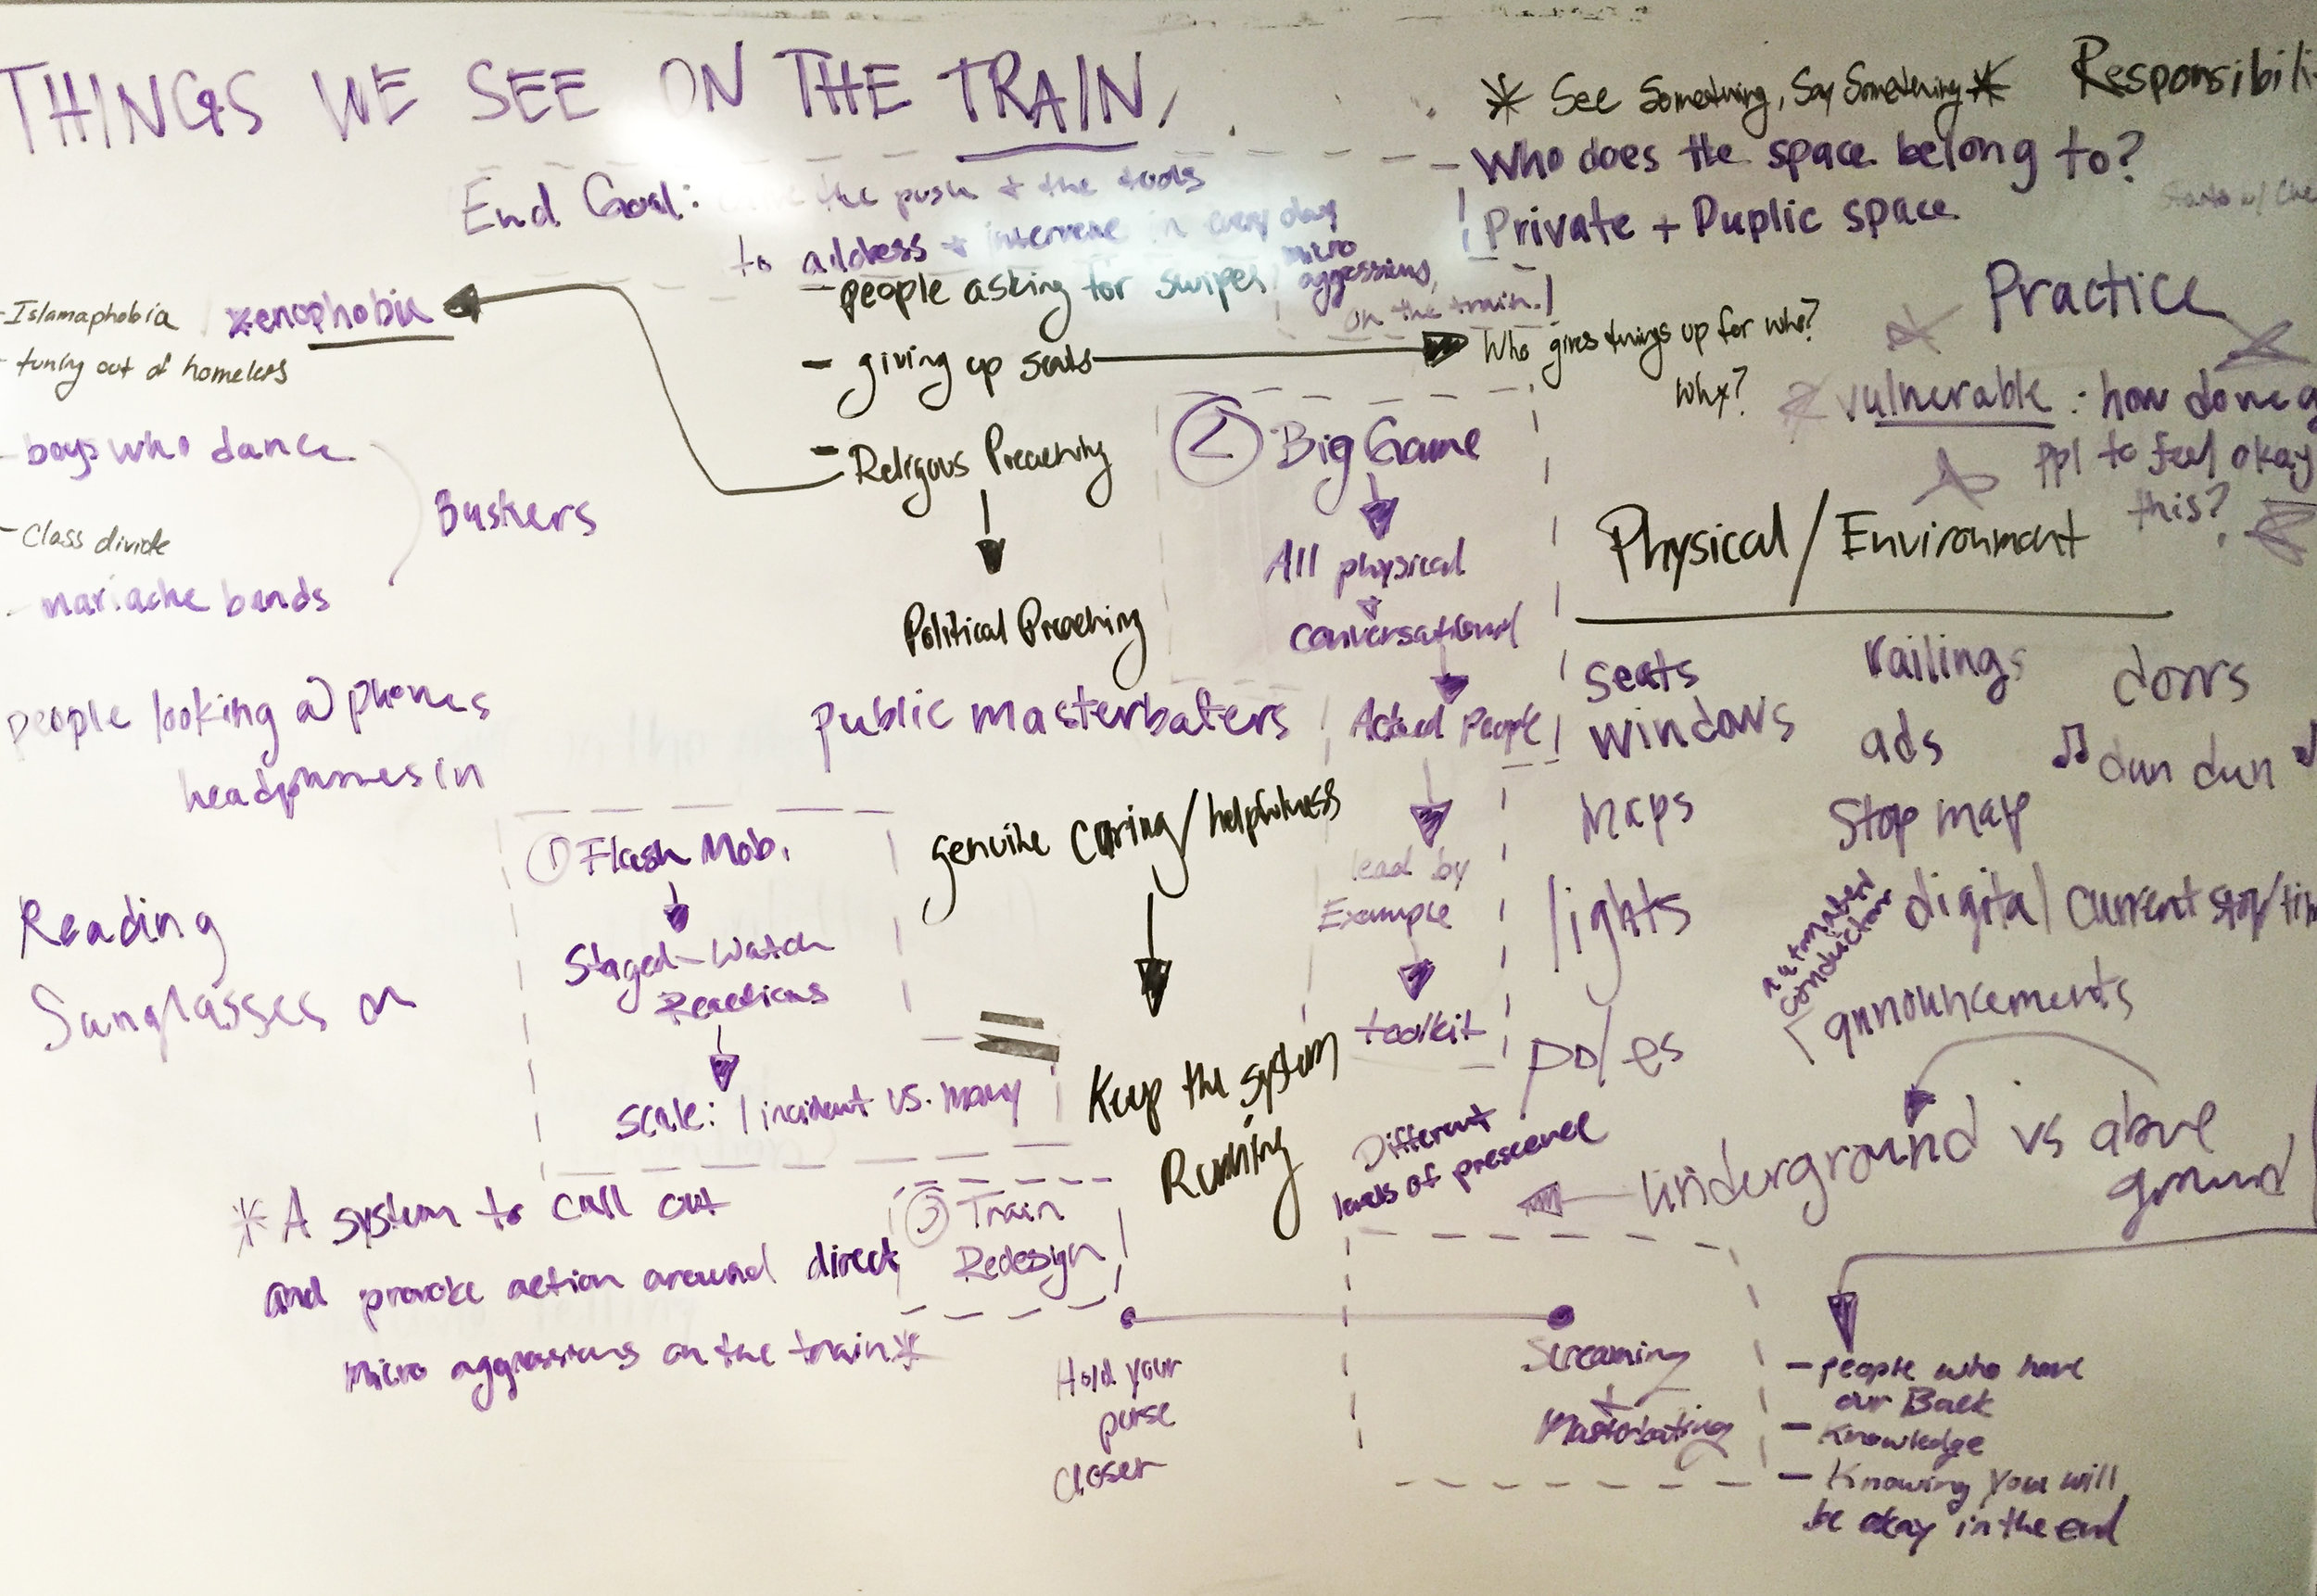 THINGS WE SEE ON THE TRAIN,
End Goal: the push + the tools
to address + intervene in every day
micro
aggressions,
on the train.
* See Something, Say Something *
Responsibili
- Who does the space belong to?
Private + Duplic space
Practice
vulnerable : how do we g
ppl to feel okay
this?
- people asking for swipes
- giving up seats
Who gives things up for who?
Why?
- Religous Preaching
Political Preaching
public masterbaters
genuine caring/helpfulness
Keep the system
Running
- Islamaphobia
xenophobia
- tuning out of homeless
- boys who dance
Buskers
- Class divide
- mariache bands
people looking @ phones
headphones in
Reading
Sunglasses on
① Flash Mob.
Staged - Watch
Reactions
scale: 1 incident vs. many
② Big Game
All physical
+
conversational
Actual People
lead by
Example
toolkit
③ Train
Redesign
* A system to call out
and provoke action around direct
micro aggressions on the train *
Hold your
purse
closer
Screaming
+
Masterbating
Physical / Environment
seats
railings
doors
windows
ads
♫ dun dun
maps
Stop map
lights
digital current stop/tim
automated
conductor
announcements
poles
Different
levels of prescence
underground vs above
ground
- people who have
our Back
- Knowledge
- Knowing you will
be okay in the end